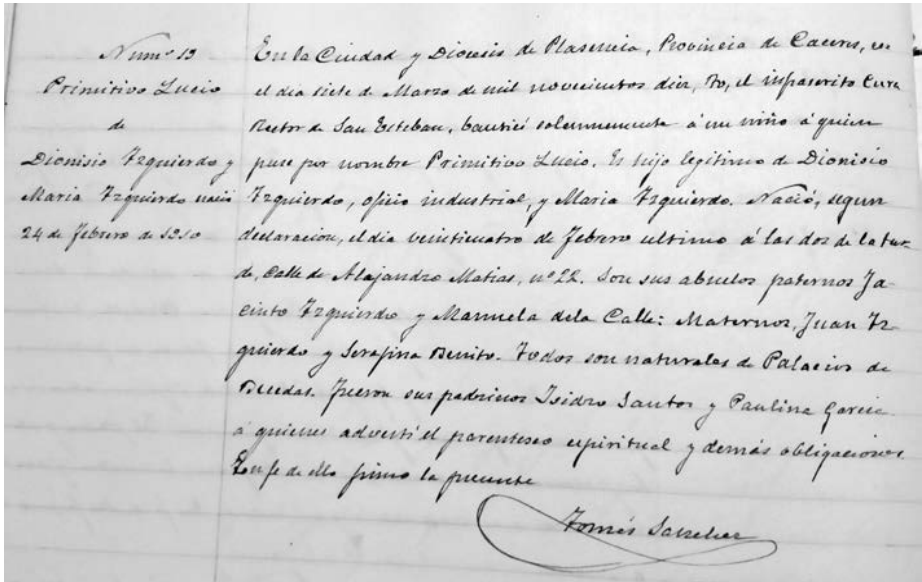 Num.º 13
Primitivo Lucio
de
Dionisio Izquierdo y
Maria Izquierdo nació
24 de Febrero de 1910
En la Ciudad y Diocesis de Plasencia, Provincia de Caceres, en
el dia siete de Marzo de mil novecientos diez, Yo, el infrascrito Cura
Rector de San Esteban, bauticé solemnemente á un niño á quien
puse por nombre Primitivo Lucio. Es hijo legitimo de Dionisio
Izquierdo, oficio industrial, y Maria Izquierdo. Nació, segun
declaracion, el dia veinticuatro de Febrero ultimo á las dos de la tar-
de, Calle de Alejandro Matias, nº 22. Son sus abuelos paternos Ja-
cinto Izquierdo y Manuela dela Calle: Maternos, Juan Iz-
quierdo y Serafina Benito. Todos son naturales de Palacios de
Fueron sus padrinos Isidro Santos y Paulina Garcia
á quienes advertí el parentesco espiritual y demás obligaciones.
En fe de ello firmo la presente
Tomás Sanchez